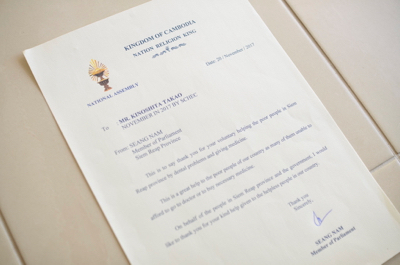 KINGDOM OF CAMBODIA
NATION RELIGION KING
Date: 20 / November / 2017
NATIONAL ASSEMBLY
To : MR. KINOSHITA TAKAO
NOVEMBER IN 2017 BY SCHEC
From: SEANG NAM
Member of Parliament
Siem Reap Province
This is to say thank you for your voluntary helping the poor people in Siem
Reap province by dental problems and giving medicine.
This is a great help to the poor people of our country as many of them unable to
afford to go to doctor or to buy necessary medicine.
On behalf of the people in Siem Reap province and the government, I would
like to thank you for your kind help given to the helpless people in our country.
Thank you
Sincerely,
SEANG NAM
Member of Parliament